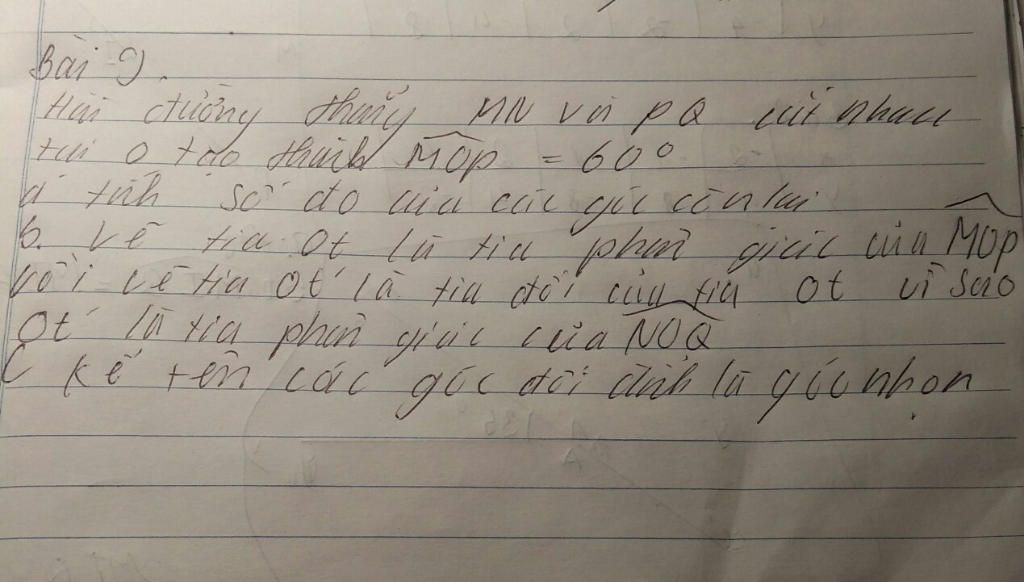 Bài 9).
Hai đường thẳng MN và PQ cắt nhau
tại O tạo thành MOP = 60°
a tính số đo của các góc còn lại
b. vẽ tia Ot là tia phân giác của MOP
rồi vẽ tia Ot' là tia đối của tia Ot vì sao
Ot' là tia phân giác của NOQ
C kể tên các góc đối đỉnh là góc nhọn